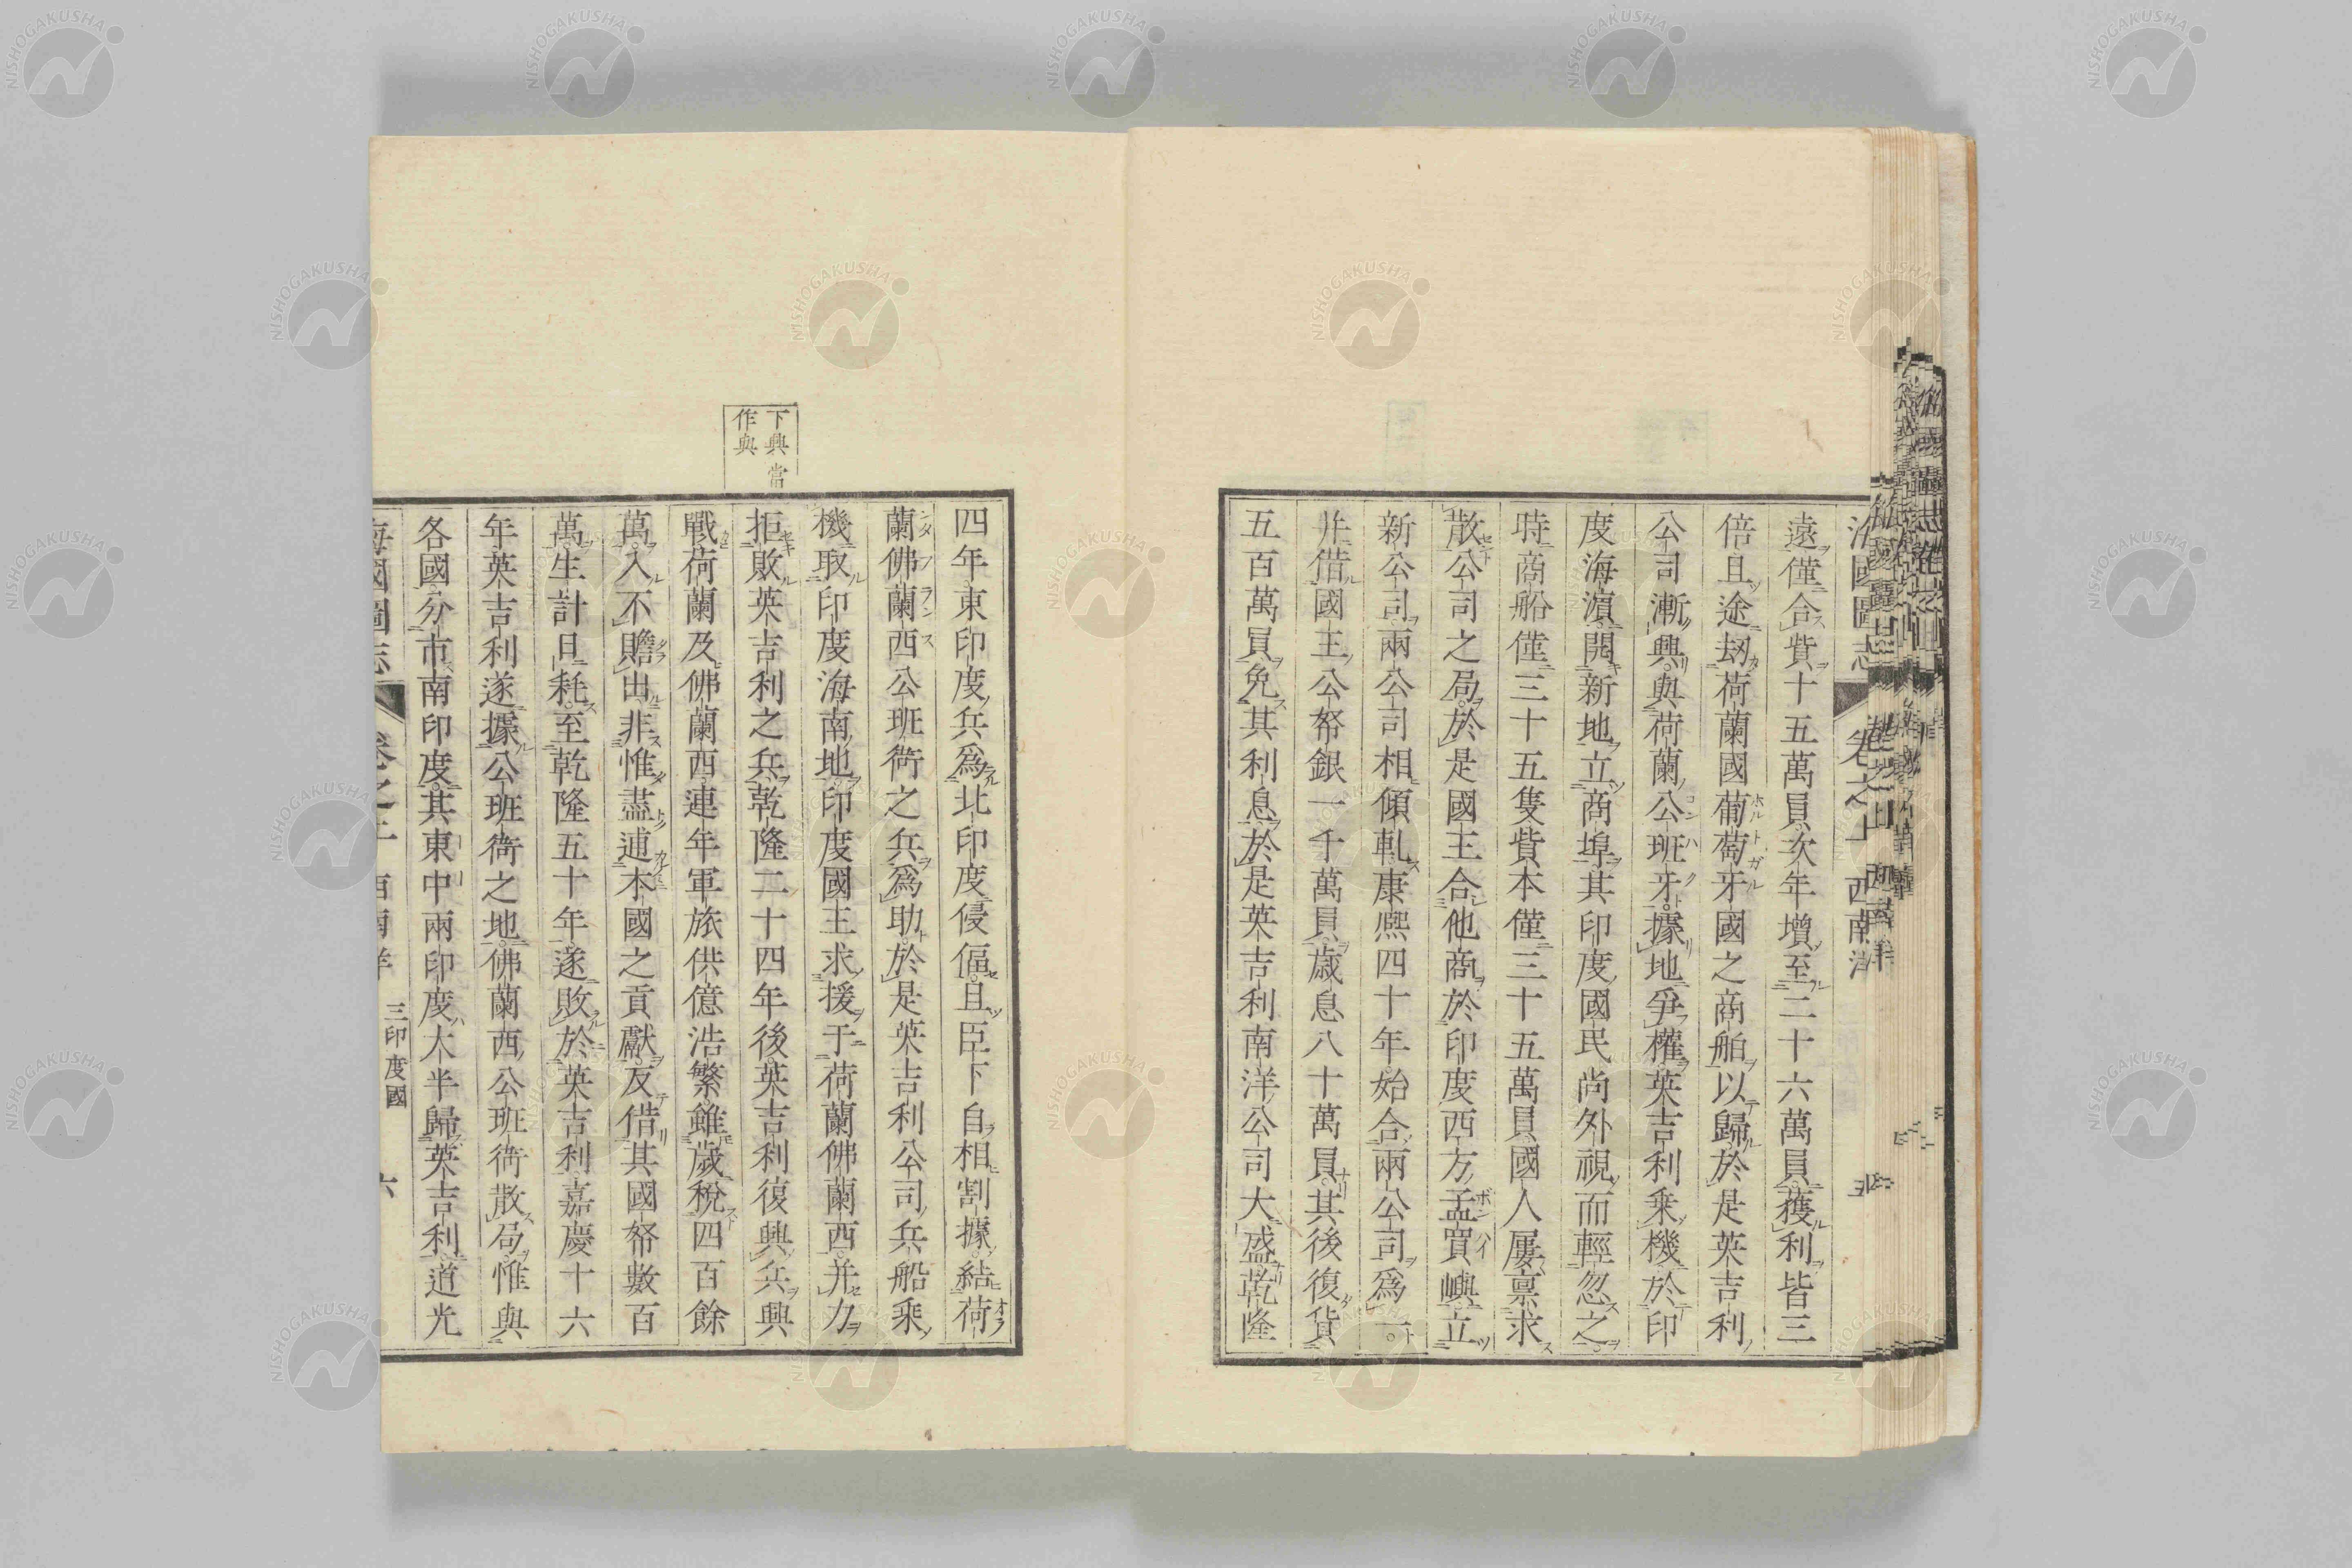 遠僅合貲十五萬員次年增至二十六萬員獲利皆三
倍且途刼荷蘭國葡萄牙國之商舶以歸於是英吉利
公司漸興與荷蘭公班牙據地爭權英吉利乘機於印
度海濵開新地立商埠其印度國民尚外視而輕忽之
時商船僅三十五隻貲本僅三十五萬員國人屢禀求
散公司之局於是國王合他商於印度西方孟買嶼立
新公司兩公司相傾軋康熙四十年始合兩公司爲一
幷借國王公帑銀一千萬員歳息八十萬員其後復貸
五百萬員免其利息於是英吉利南洋公司大盛乾隆
下興當
作與
四年東印度兵爲北印度侵偪且臣下自相割據結荷
蘭佛蘭西公班衙之兵爲助於是英吉利公司兵船乘
機取印度海南地印度國主求援于荷蘭佛蘭西并力
拒敗英吉利之兵乾隆二十四年後英吉利復興兵興
戰荷蘭及佛蘭西連年軍旅供億浩繁雖歲稅四百餘
萬入不贍出非惟盡逋本國之貢獻反借其國帑數百
萬生計日耗至乾隆五十年遂敗於英吉利嘉慶十六
年英吉利遂據公班衙之地佛蘭西公班衙散局惟與
各國分市南印度其東中兩印度大半歸英吉利道光
海國圖志 卷之上 西南洋 三印度國 六
NISHOGAKUSHA